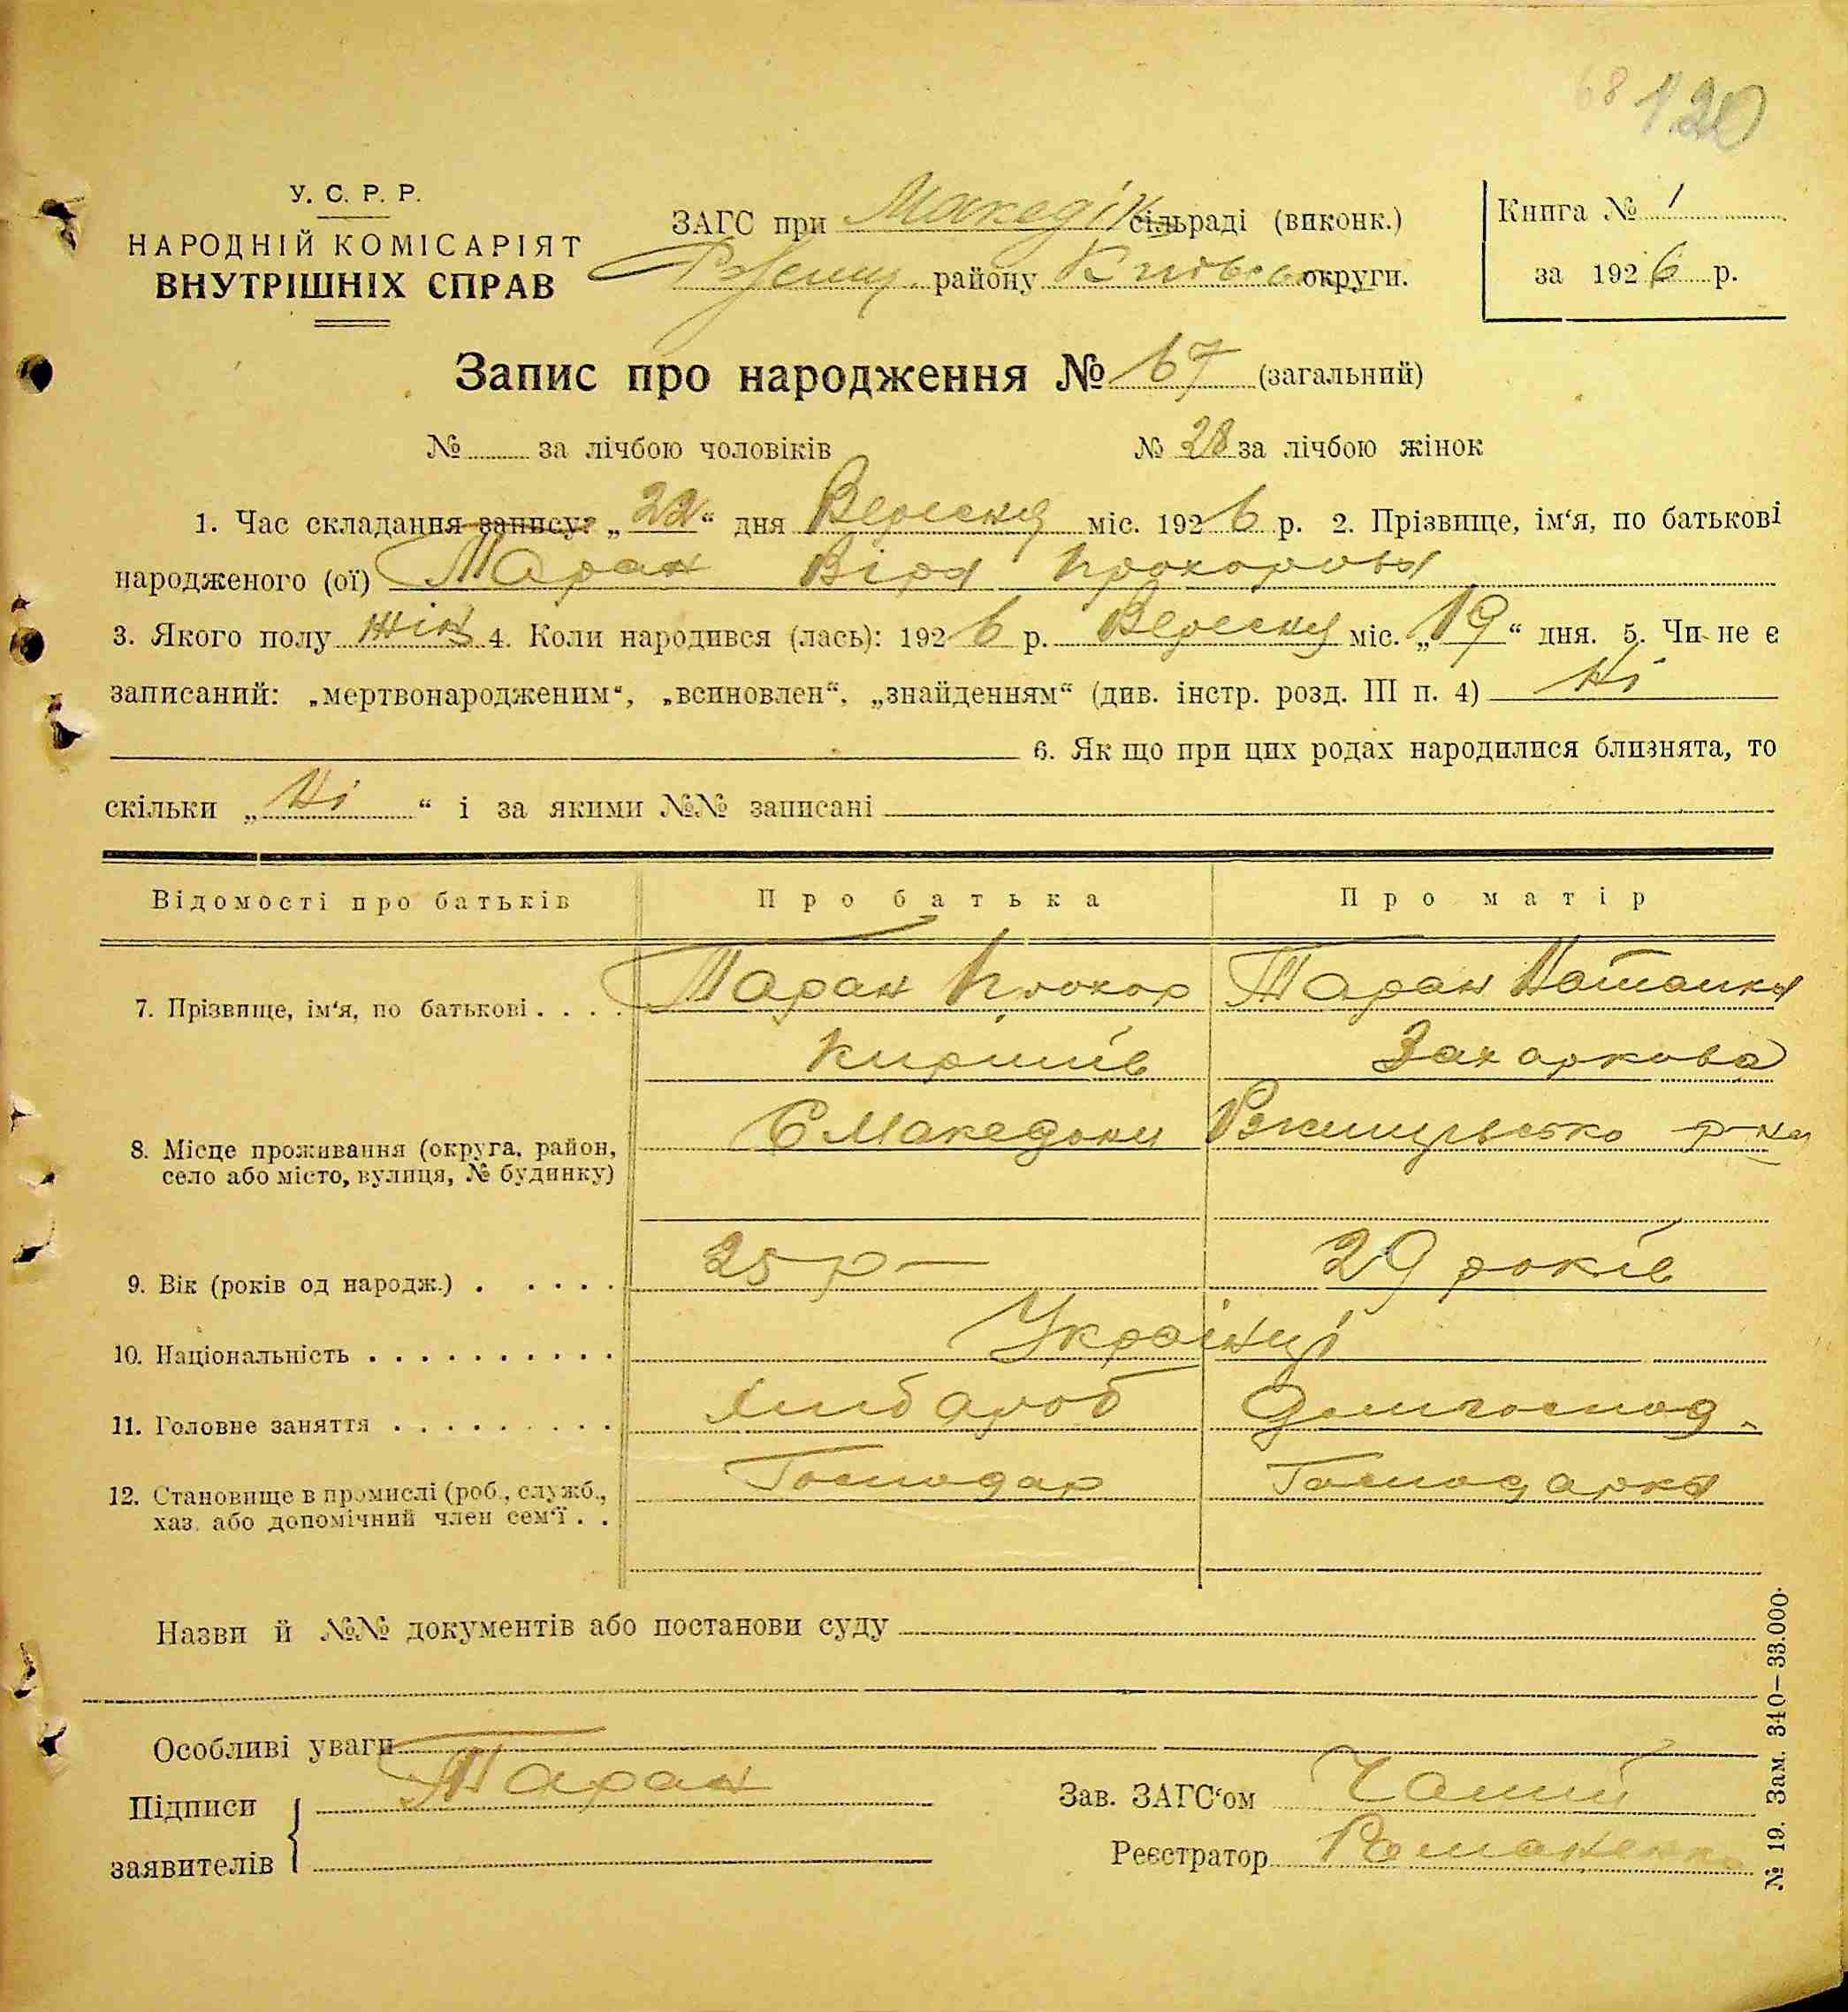 68 120
У. С. Р. Р.
НАРОДНІЙ КОМІСАРІЯТ
ВНУТРІШНІХ СПРАВ
ЗАГС при Македін сільраді (виконк.)
Ржищ. району Київськ округи.
Книга № 1
за 1926 р.
Запис про народження № 67 (загальний)
№ за лічбою чоловіків № 28 за лічбою жінок
1. Час складання запису: „22“ дня Вересня міс. 1926 р. 2. Прізвище, ім‘я, по батькові
народженого (ої) Таран Віра Прохорова
3. Якого полу жін 4. Коли народився (лась): 1926 р. Вересня міс. „19“ дня. 5. Чи не є
записаний: „мертвонародженим“, „всиновлен“, „знайденням“ (див. інстр. розд. III п. 4) Ні
6. Як що при цих родах народилися близнята, то
скільки „Ні“ і за якими №№ записані
Відомості про батьків Про батька Про матір
7. Прізвище, ім‘я, по батькові . . . . Таран Прохор Таран Наталка
Кирилів Захаркова
8. Місце проживання (округа, район, С Македони Ржищівсько р-на
село або місто, вулиця, № будинку)
9. Вік (років од народж.) . . . . . 25 р 29 років
10. Національність . . . . . . . . . . Українці
11. Головне заняття . . . . . . . . . Хлібароб Домгоспод.
12. Становище в промислі (роб., служб., Господар Господарка
хаз. або допомічний член сем‘ї . .
Назви й №№ документів або постанови суду
Особливі уваги
Підписи Таран Зав. ЗАГС‘ом
заявителів Реєстратор Романенко
№ 19. Зам. 340—33.000.